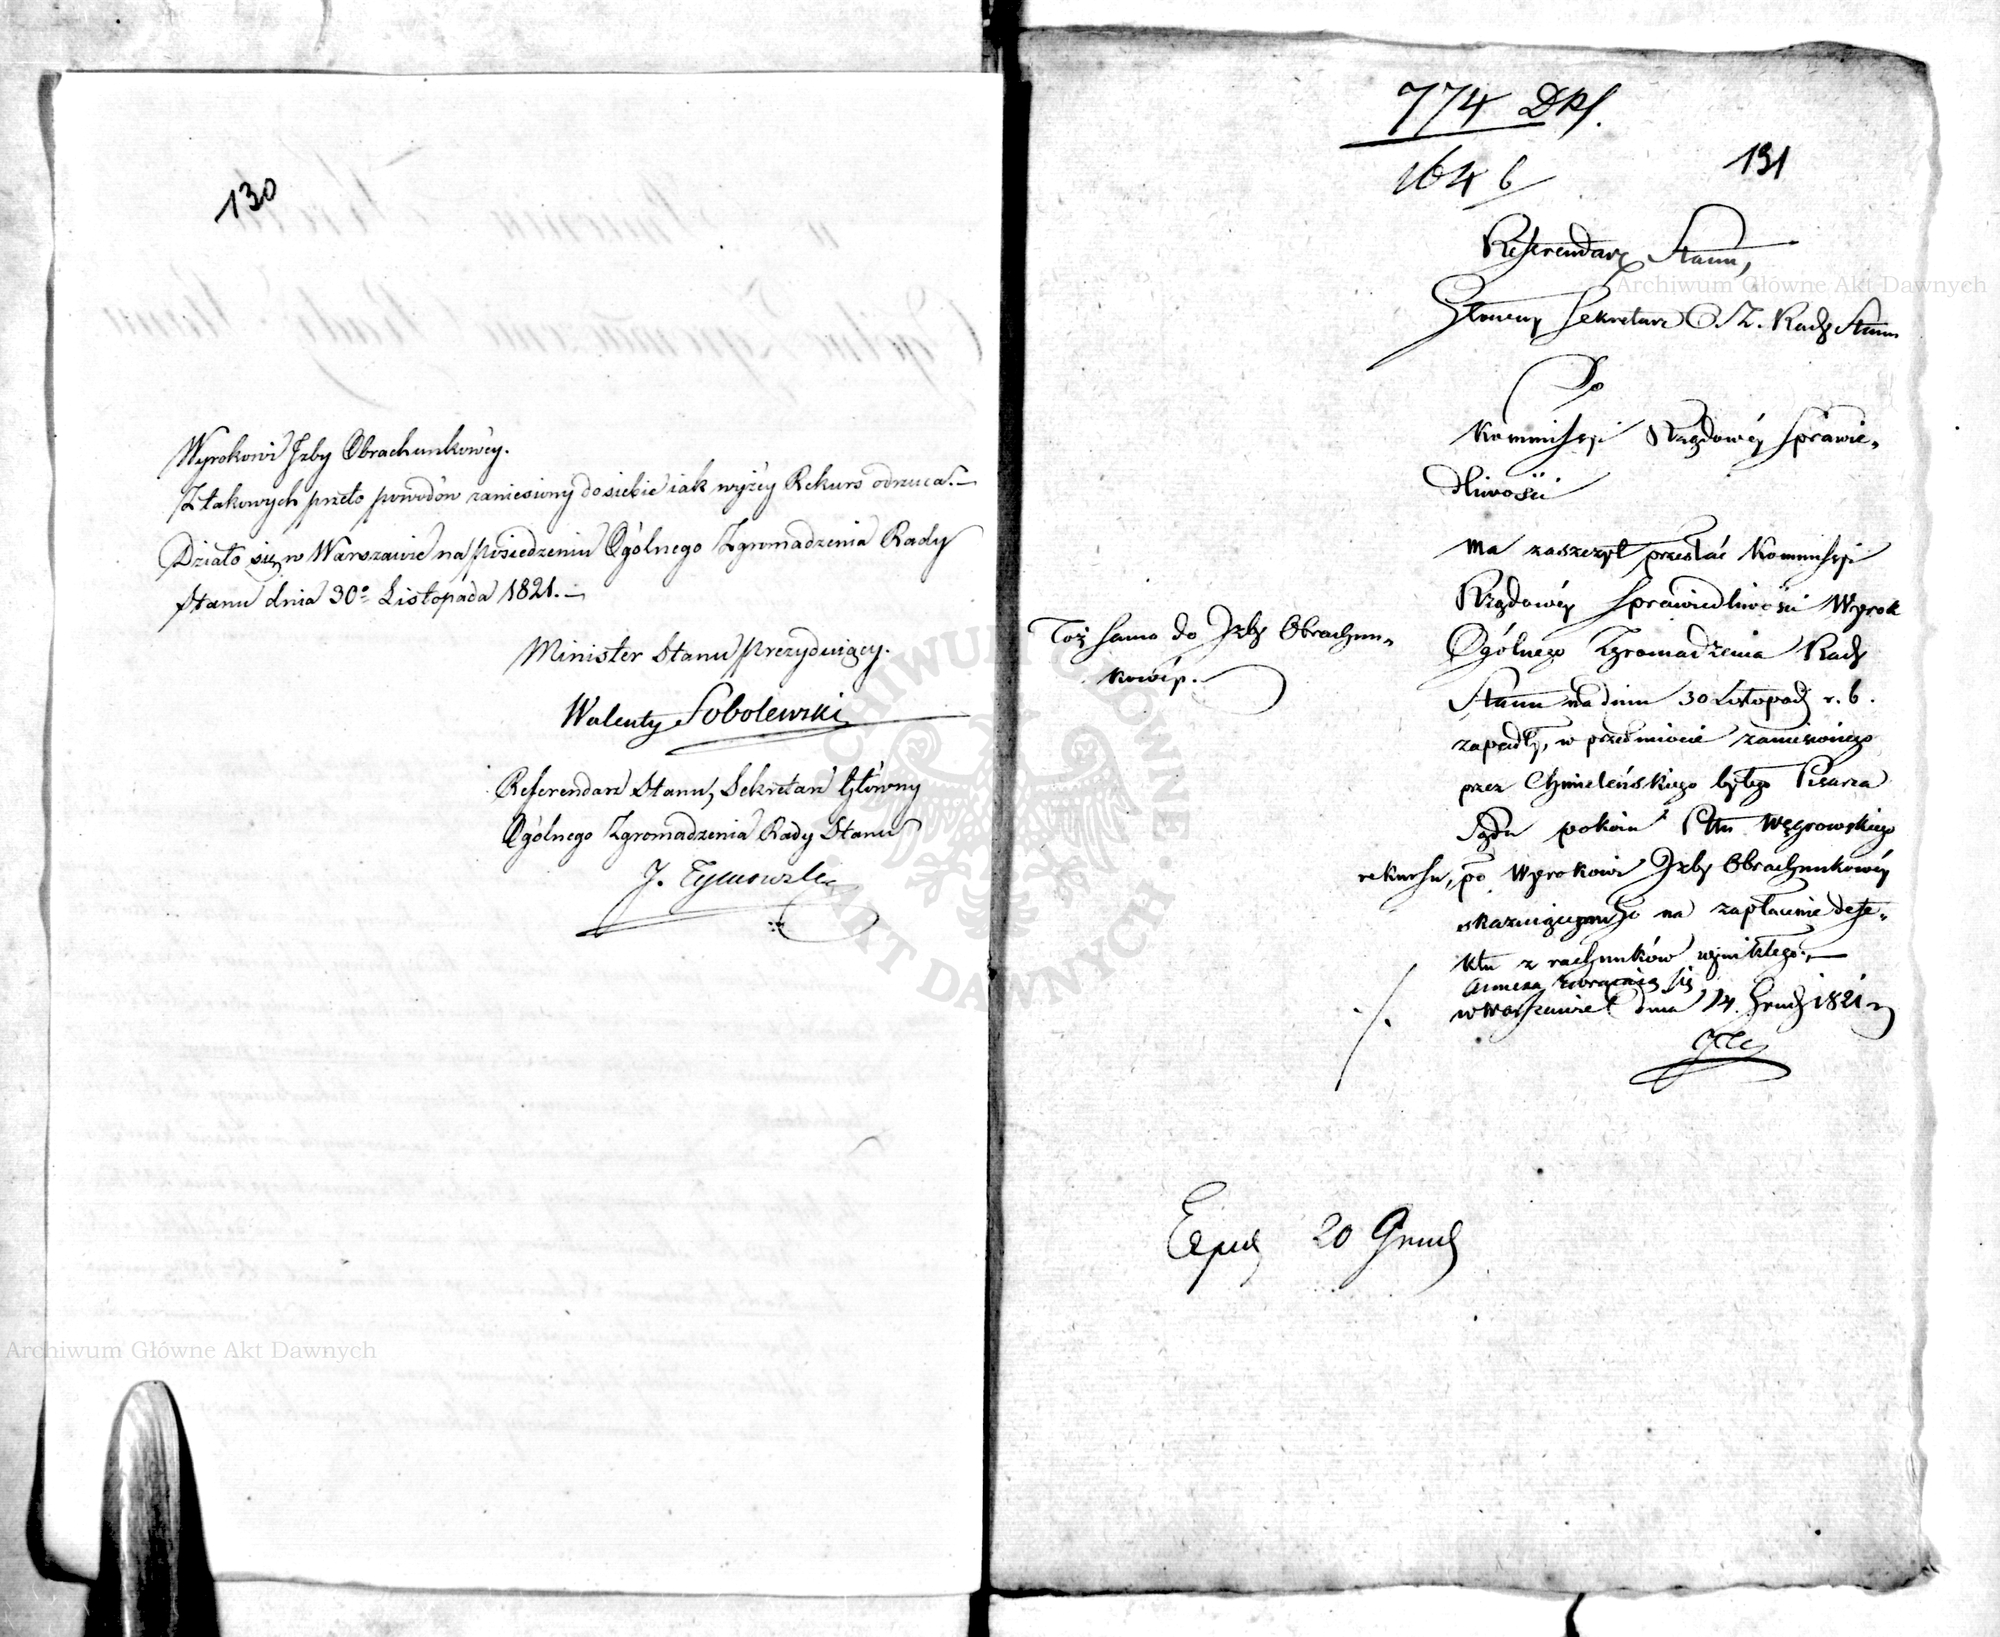 130
Wyrokowi Izby Obrachunkowey.
Z takowych przeto powodów zaniesiony do siebie iak wyżey Rekurs odrzuca.—
Działo się w Warszawie na posiedzeniu Ogólnego Zgromadzenia Rady
Stanu dnia 30º Listopada 1821.—
Minister Stanu prezyduiący.
Walenty Sobolewski
Referendarz Stanu, Sekretarz Główny
Ogólnego Zgromadzenia Rady Stanu
J. Tymowski
774 DPS.
1646
131
Referendarz Stanu,
Główny Sekretarz O. Z. Rady Stanu
Do
Kommissyi Rządowéy Sprawie-
dliwości
ma zaszczyt przesłać Kommissyi
Rządowéy Sprawiedliwości Wyrok
Ogólnego Zgromadzenia Rady
Stanu na dniu 30 Listopad r. b.
zapadły, w przedmiocie zaniesionego
przez Chmieleńskiego byłego Pisarza
Sądu pokoiu Pttu Węgrowskiego
rekursu, po Wyrokowi Izby Obrachunkowéy
skazuiącemu go na zapłacenie defe-
ktu z rachunków wynikłego.—
Annexa zwracaią się
w Warszawie dnia 14. Grud 1821 r
Toż samo do Izby Obrachun-
kowéy.
Exped 20 Grud
Archiwum Główne Akt Dawnych
Archiwum Główne Akt Dawnych
ARCHIWUM GŁÓWNE AKT DAWNYCH